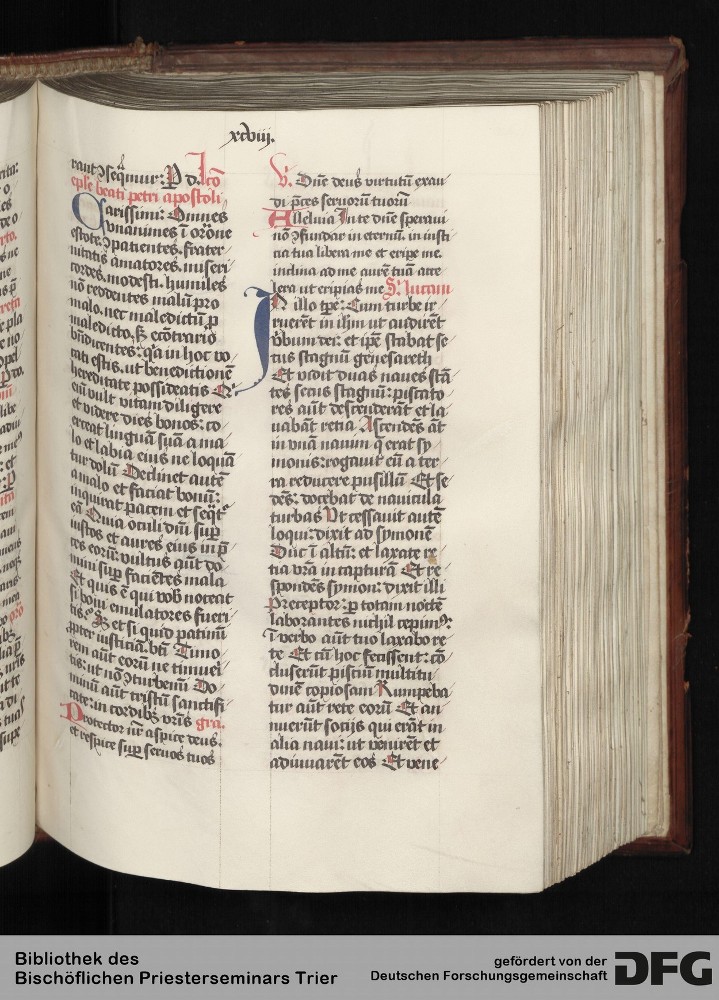 xcviii.
rant ↄseqmur: P d. Lco̅
epl̅e beati petri apostoli
Carissimi: Omnes
vnanimes i̅ oro̅ne
estote. ↄpatientes. frater-
nitatis amatores. miseri-
cordes. modesti. humiles
no̅ reddentes malu̅ pro
malo. nec maledictu̅ p̱
maledicto. s; eco̅trario
bn̅dicentes: q̅a in hoc vo-
cati estis. ut benedictione̅
hereditate possideatis Q-
eni̅ vult vitam diligere
et videre dies bonos: co-
erceat lingua̅ sua̅ a ma-
lo et labia eius ne loqua̅-
tur dolu̅ Declinet aute̅
a malo et faciat bonu̅:
inquirat pacem et seqt᷑
ea̅ Quia oculi dni̅ sup̱
iustos et aures eius in p̅-
ces eoru̅: vultus au̅t do-
mini sup̱ facie̅tes mala
Et quis e̅ qui vob̅ noceat
si boni emulatores fueri-
tis? S; et si quid patimi̅
ꝓpter iusticia̅. bt̅i Timo-
rem au̅t eoru̅ ne timuei-
tis: ut no̅ ↄturbemi̅ Do-
minu̅ au̅t xpistu̅ sanctifi-
cate: in cordib; vr̅is gra.
Protector nr̅ aspice deus.
et respice sup̱ seruos tuos
V. Dne̅ deus virtutu̅ exau-
di p̅ces seruoru̅ tuoru̅
Alleluia In te dne̅ speraui
no̅ ↄfundar in eternu̅. in iusti-
cia tua libera me et eripe me.
inclina ad me aure̅ tua̅ acce-
lera ut eripias me S. lucam
IN illo tp̅e: Cum turbe ir-
ruere̅t in ih̅m ut audire̅t
v̅bum dei: et ip̅e stabat se-
cus stagnu̅ genesareth
Et vidit duas naues sta̅-
tes secus stagnu̅: piscato-
res au̅t descendera̅t et la-
uaba̅t retia. Ascende̅s a̅t
in vna̅ nauim q̅ erat sy-
monis: rogauit eu̅ a ter-
ra reducere pusillu̅ Et se-
de̅s: docebat de nauicula
turbas Vt cessauit aute̅
loqui: dixit ad symone̅
Duc i̅ altu̅: et laxate re-
tia vr̅a in captura̅ Et re-
sponde̅s symon: dixit illi
Preceptor: p̱ totam nocte̅
laborantes nichil cepim᷒:
i̅ verbo au̅t tuo laxabo re-
te Et cu̅ hoc fecissent: co̅-
cluseru̅t pisciu̅ multitu-
dine̅ copiosam Rumpeba-
tur au̅t rete eoru̅ Et an-
nueru̅t socijs qui era̅t in
alia naui: ut venire̅t et
adiuuare̅t eos Et vene-
Bibliothek des
Bischöflichen Priesterseminars Trier
gefördert von der
Deutschen Forschungsgemeinschaft
DFG